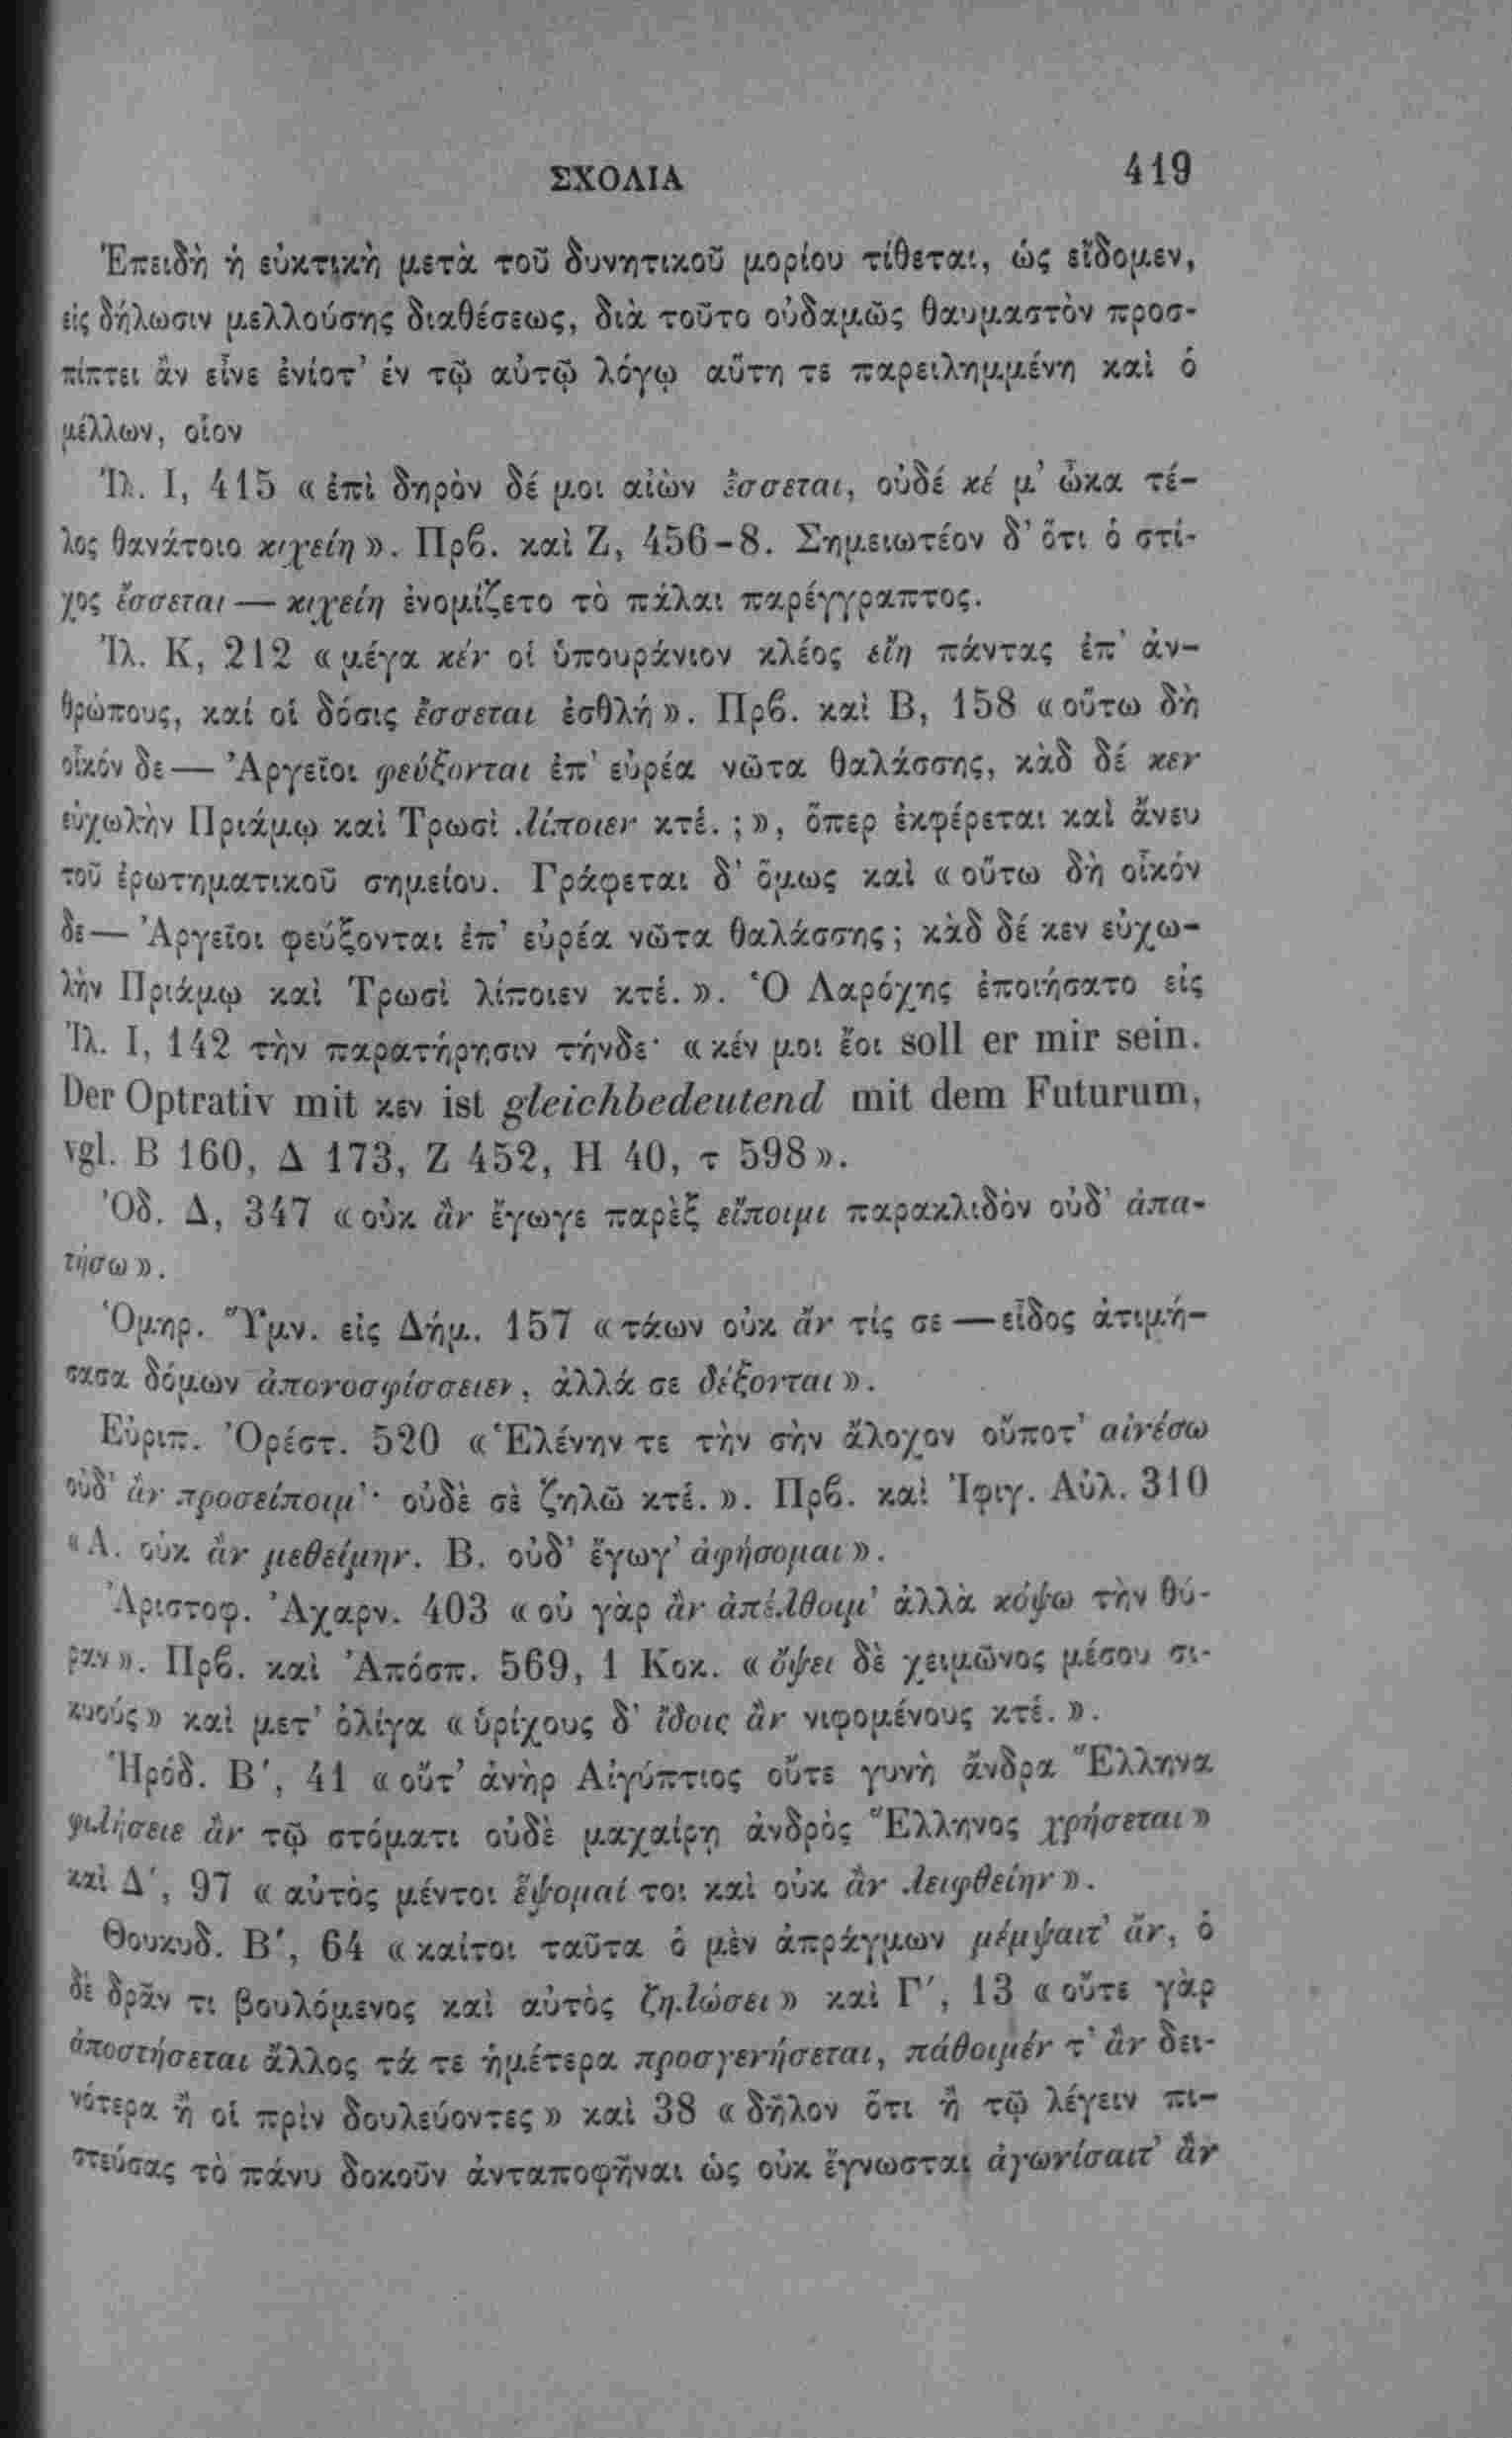 ΣΧΟΛΙΑ 419
Ἐπειδὴ ἡ εὐκτικὴ μετὰ τοῦ δυνητικοῦ μορίου τίθεται, ὡς εἴδομεν,
εἰς δήλωσιν μελλούσης διαθέσεως, διὰ τοῦτο οὐδαμῶς θαυμαστὸν προσ-
πίπτει ἂν εἶνε ἐνίοτ’ ἐν τῷ αὐτῷ λόγῳ αὕτη τε παρειλημμένη καὶ ὁ
μέλλων, οἷον
Ἰλ. Ι, 415 «ἐπὶ δηρὸν δέ μοι αἰὼν ἔσσεται, οὐδέ κέ μ’ ὦκα τέ-
λος θανάτοιο κιχείη». Πρβ. καὶ Ζ, 456-8. Σημειωτέον δ’ ὅτι ὁ στί-
χος ἔσσεται — κιχείη ἐνομίζετο τὸ πάλαι παρέγγραπτος.
Ἰλ. Κ, 212 «μέγα κέν οἱ ὑπουράνιον κλέος εἴη πάντας ἐπ’ ἀν-
θρώπους, καί οἱ δόσις ἔσσεται ἐσθλή». Πρβ. καὶ Β, 158 «οὕτω δὴ
οἶκόν δε — Ἀργεῖοι φεύξονται ἐπ’ εὐρέα νῶτα θαλάσσης, κὰδ δέ κεν
εὐχωλὴν Πριάμῳ καὶ Τρωσὶ λίποιεν κτέ. ;», ὅπερ ἐκφέρεται καὶ ἄνευ
τοῦ ἐρωτηματικοῦ σημείου. Γράφεται δ’ ὅμως καὶ «οὕτω δὴ οἶκόν
δε — Ἀργεῖοι φεύξονται ἐπ’ εὐρέα νῶτα θαλάσσης; κὰδ δέ κεν εὐχω-
λὴν Πριάμῳ καὶ Τρωσὶ λίποιεν κτέ.». Ὁ Λαρόχης ἐποιήσατο εἰς
Ἰλ. Ι, 142 τὴν παρατήρησιν τήνδε· «κέν μοι ἔοι soll er mir sein.
Der Optrativ mit κεν ist gleichbedeutend mit dem Futurum,
vgl. Β 160, Δ 173, Ζ 452, Η 40, τ 598».
Ὀδ. Δ, 347 «οὐκ ἂν ἔγωγε παρὲξ εἴποιμι παρακλιδὸν οὐδ’ ἀπα-
τήσω».
Ὁμηρ. Ὕμν. εἰς Δήμ. 157 «τάων οὐκ ἄν τίς σε — εἶδος ἀτιμή-
σασα δόμων ἀπονοσφίσσειεν, ἀλλά σε δέξονται».
Εὐριπ. Ὀρέστ. 520 «Ἑλένην τε τὴν σὴν ἄλοχον οὔποτ’ αἰνέσω
οὐδ’ ἂν προσείποιμ’· οὐδὲ σὲ ζηλῶ κτέ.». Πρβ. καὶ Ἰφιγ. Αὐλ. 310
«Α. οὐκ ἂν μεθείμην. Β. οὐδ’ ἔγωγ’ ἀφήσομαι».
Ἀριστοφ. Ἀχαρν. 403 «οὐ γὰρ ἂν ἀπέλθοιμ’ ἀλλὰ κόψω τὴν θύ-
ραν». Πρβ. καὶ Ἀπόσπ. 569, 1 Κοκ. «ὄψει δὲ χειμῶνος μέσου σι-
κυοὺς» καὶ μετ’ ὀλίγα «ὑρίχους δ’ ἴδοις ἂν νιφομένους κτέ.».
Ἡρόδ. Β′, 41 «οὔτ’ ἀνὴρ Αἰγύπτιος οὔτε γυνὴ ἄνδρα Ἕλληνα
φιλήσειε ἂν τῷ στόματι οὐδὲ μαχαίρῃ ἀνδρὸς Ἕλληνος χρήσεται»
καὶ Δ′, 97 «αὐτὸς μέντοι ἕψομαί τοι καὶ οὐκ ἂν λειφθείην».
Θουκυδ. Β′, 64 «καίτοι ταῦτα ὁ μὲν ἀπράγμων μέμψαιτ’ ἄν, ὁ
δὲ δρᾶν τι βουλόμενος καὶ αὐτὸς ζηλώσει» καὶ Γ′, 13 «οὔτε γὰρ
ἀποστήσεται ἄλλος τά τε ἡμέτερα προσγενήσεται, πάθοιμέν τ’ ἂν δει-
νότερα ἢ οἱ πρὶν δουλεύοντες» καὶ 38 «δῆλον ὅτι ἢ τῷ λέγειν πι-
στεύσας τὸ πάνυ δοκοῦν ἀνταποφῆναι ὡς οὐκ ἔγνωσται ἀγωνίσαιτ’ ἂν